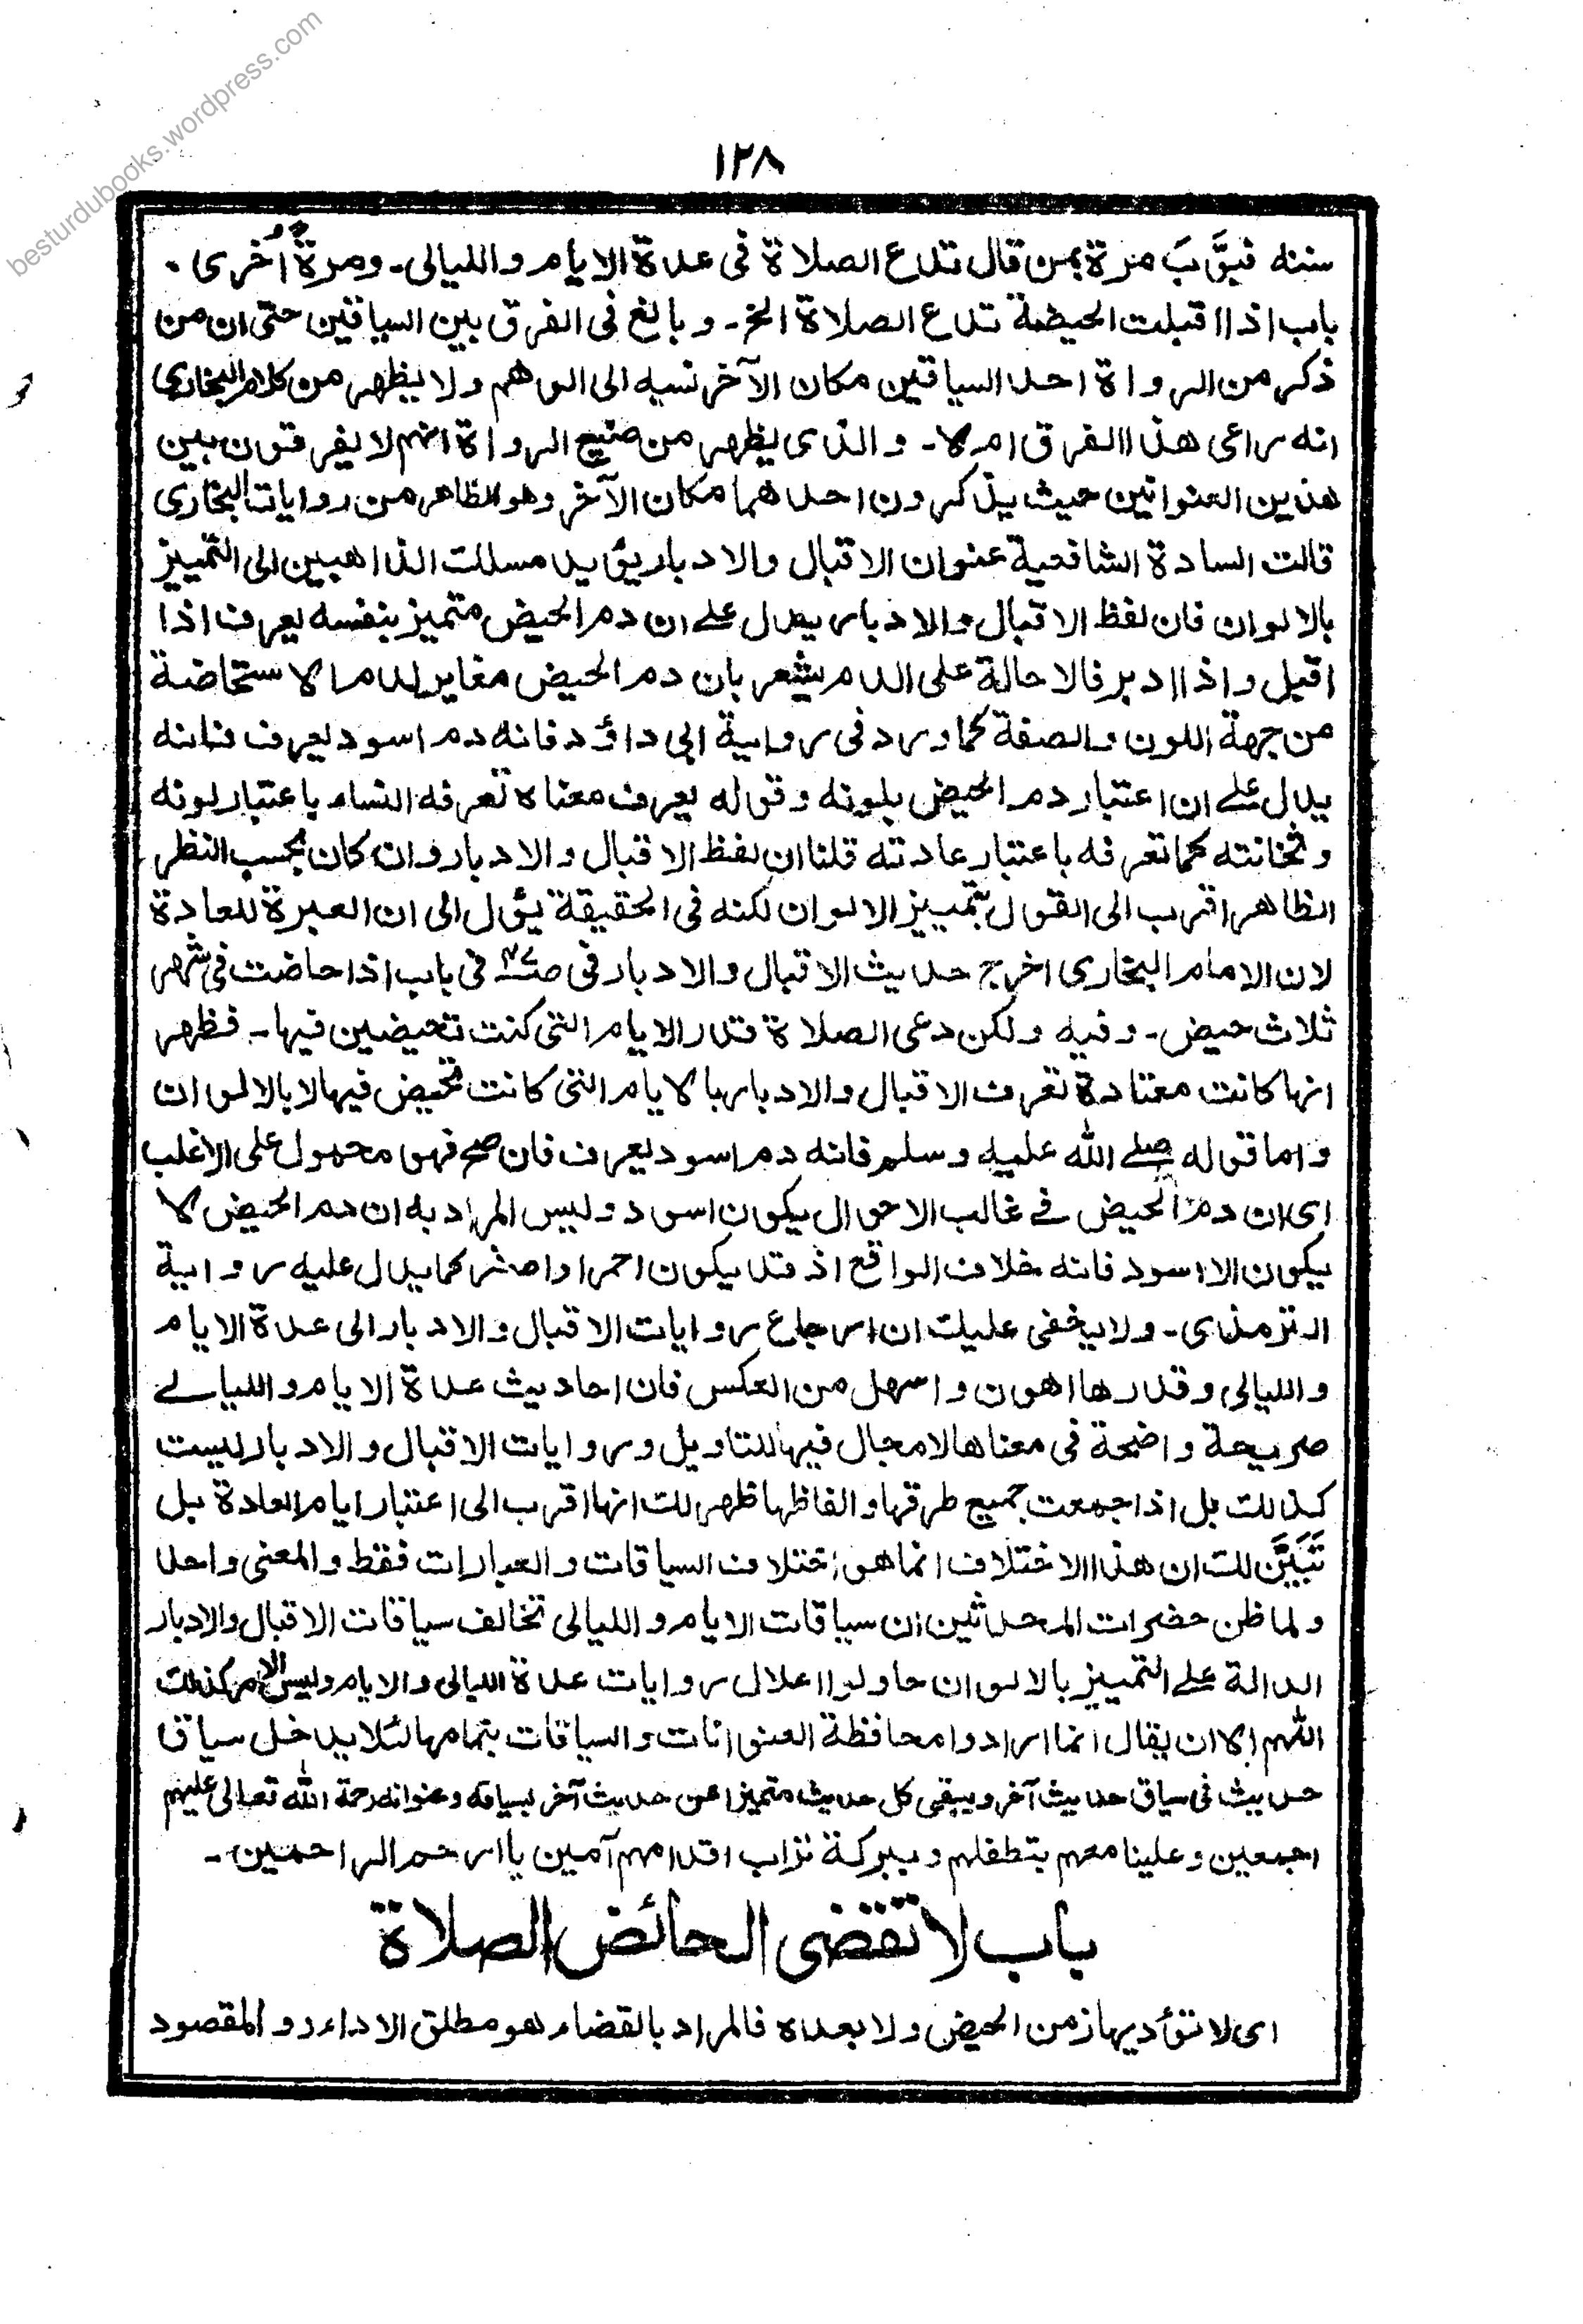 besturdubooks.wordpress.com
١٢٨
سننه فبَوَّبَ مرة بمن قال تدع الصلاة فى عدة الايام والليالى۔ ومرةً أُخرى
باب اذا اقبلت الحيضة تدع الصلاة الخ۔ وبالغ فى الفرق بين السياقين حتى ان من
ذكر من الرواة احد السياقين مكان الآخر نسبه الى الوهم ولا يظهر من كلام البخارى
انه راعى هذا الفرق ام لا۔ والذى يظهر من صنيع الرواة انهم لا يفرقون بين
هذين العنوانين حيث يذكرون احدهما مكان الآخر وهو الظاهر من روايات البخارى
قالت السادة الشافعية عنوان الاقبال والادبار يؤيد مسلك الذاهبين الى التمييز
بالالوان فان لفظ الاقبال والادبار يدل على ان دم الحيض متميز بنفسه يعرف اذا
اقبل واذا ادبر فالاحالة على الدم يشعر بان دم الحيض مغاير لدم الاستحاضة
من جهة اللون والصفة كما ورد فى رواية ابى داؤد فانه دم اسود يعرف فانه
يدل على ان اعتبار دم الحيض بلونه وقوله يعرف معناه تعرفه النساء باعتبار لونه
وثخانته كما تعرفه باعتبار عادته قلنا ان لفظ الاقبال والادبار وان كان بحسب النظر
الظاهر اقرب الى القول بتمييز الالوان لكنه فى الحقيقة يؤل الى ان العبرة للعادة
لان الامام البخارى اخرج حديث الاقبال والادبار فى فى باب اذا حاضت فى شهر
ثلاث حيض۔ وفيه ولكن دعى الصلاة قدر الايام التى كنت تحيضين فيها۔ فظهر
انها كانت معتادة تعرف الاقبال والادبار بالايام التى كانت تحيض فيها لا بالالوان
واما قوله صلى الله عليه وسلم فانه دم اسود يعرف فان صح فهو محمول على الاغلب
اى ان دم الحيض فى غالب الاحوال يكون اسود وليس المراد به ان دم الحيض لا
يكون الا اسود فانه خلاف الواقع اذ قد يكون احمر او اصفر كما يدل عليه رواية
الترمذى۔ ولا يخفى عليك ان ارجاع روايات الاقبال والادبار الى عدة الايام
والليالى وقدرها اهون واسهل من العكس فان احاديث عدة الايام والليالى
صريحة واضحة فى معناها لا مجال فيها للتاويل وروايات الاقبال والادبار ليست
كذلك بل اذا جمعت جميع طرقها والفاظها ظهر لك انها اقرب الى اعتبار ايام العادة بل
تَبَيَّن لك ان هذا الاختلاف انما هو اختلاف السياقات والعبارات فقط والمعنى واحد
ولما ظن حضرات المحدثين ان سياقات الايام والليالى تخالف سياقات الاقبال والادبار
الدالة على التمييز بالالوان حاولوا اعلال روايات عدة الليالى والايام وليس الامر كذلك
اللهم الا ان يقال انما ارادوا محافظة العنوانات والسياقات بتمامها لئلا يدخل سياق
حديث فى سياق حديث آخر ويبقى كل حديث متميزا عن حديث آخر بسياقه وعنوانه رحمة الله تعالى عليهم
اجمعين وعلينا معهم بتطفلهم وببركة تراب اقدامهم آمين يا ارحم الراحمين۔
باب لا تقضى الحائض الصلاة
اى لا تؤديها زمن الحيض ولا بعده فالمراد بالقضاء هو مطلق الاداء والمقصود